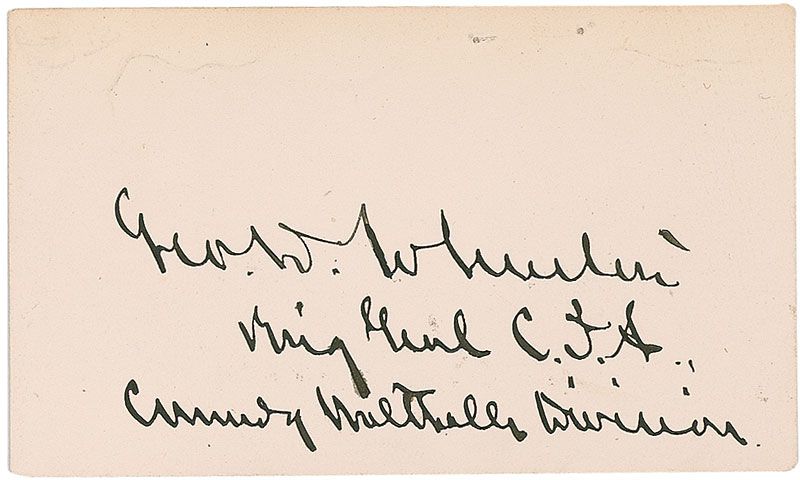 Geo. D. Johnston
Brig Genl C.S.A.,
Commdg Walthalls Division.